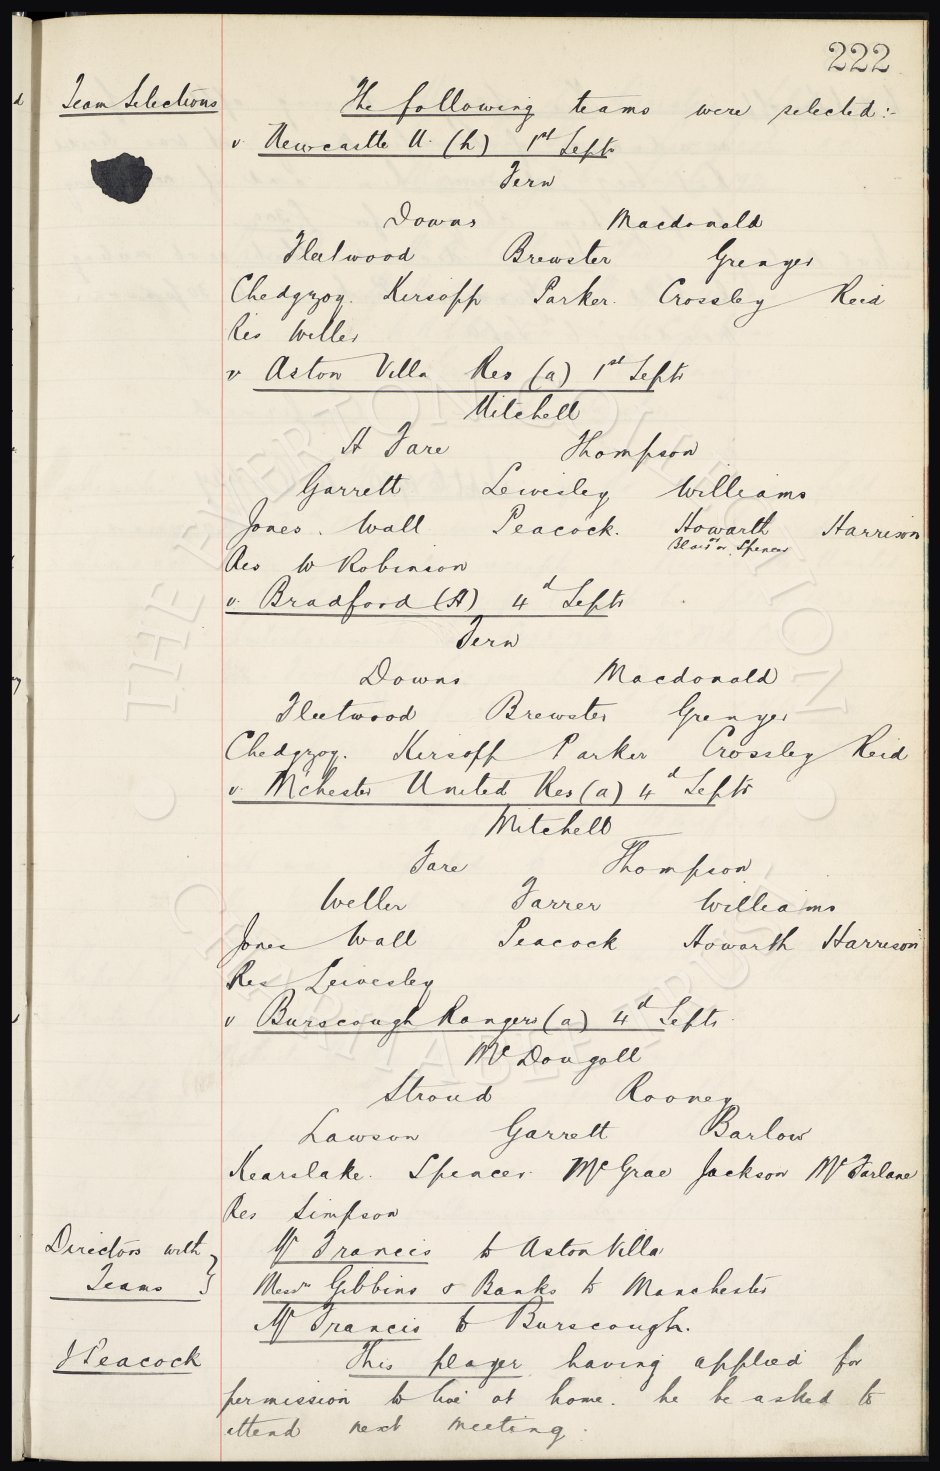 222
Team Selections
The following teams were selected :-
v. Newcastle U. (h) 1st Septr
Fern
Downs Macdonald
Fleetwood Brewster Grenyer
Chedgzoy. Kirsopp Parker. Crossley Reid
Res Weller
v Aston Villa Res (a) 1st Septr
Mitchell
A Fare Thompson
Garrett Leivesley Williams
Jones. Wall Peacock. Howarth Harrison
Blair or Spencer
Res W Robinson
v. Bradford (A) 4d Septr
Fern
Downs Macdonald
Fleetwood Brewster Grenyer
Chedgzoy. Kirsopp Parker Crossley Reid
v. Mchester United Res (a) 4d Septr
Mitchell
Fare Thompson
Weller Farrer Williams
Jones Wall Peacock Howarth Harrison
Res Leivesley
v Burscough Rangers (a) 4d Septr.
McDougall
Stroud Rooney
Lawson Garrett Barlow
Kearslake. Spencer McGrae Jackson McFarlane
Res Simpson
Directors with
Teams
Mr Francis to Aston Villa
Messrs Gibbins & Banks to Manchester
Mr Francis to Burscough.
J Peacock
This player having applied for
permission to live at home. he be asked to
attend next meeting.
THE EVERTON COLLECTION
CHARITABLE TRUST